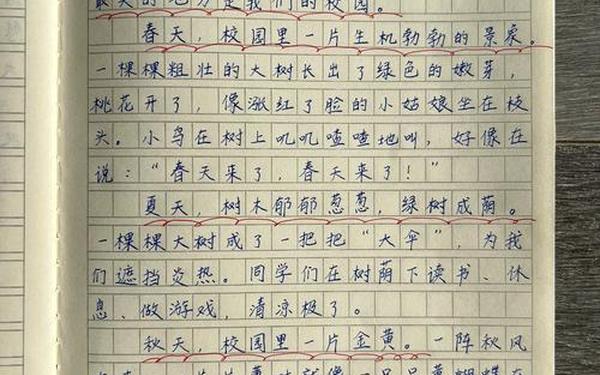 最美的地方是我们的校园。
春天，校园里一片生机勃勃的景象。
一棵棵粗壮的大树长出了绿色的嫩芽，
桃花开了，像涨红了脸的小姑娘坐在枝
头。小鸟在树上叽叽喳喳地叫，好像在
说：“春天来了，春天来了！”
夏天，树木郁郁葱葱，绿树成荫。
一棵棵大树成了一把把“大伞”，为我
们遮挡炎热。同学们在树荫下读书、休
息、做游戏，清凉极了。
秋天，校园里一片金黄。一阵秋风
就像一只只黄蝴蝶在